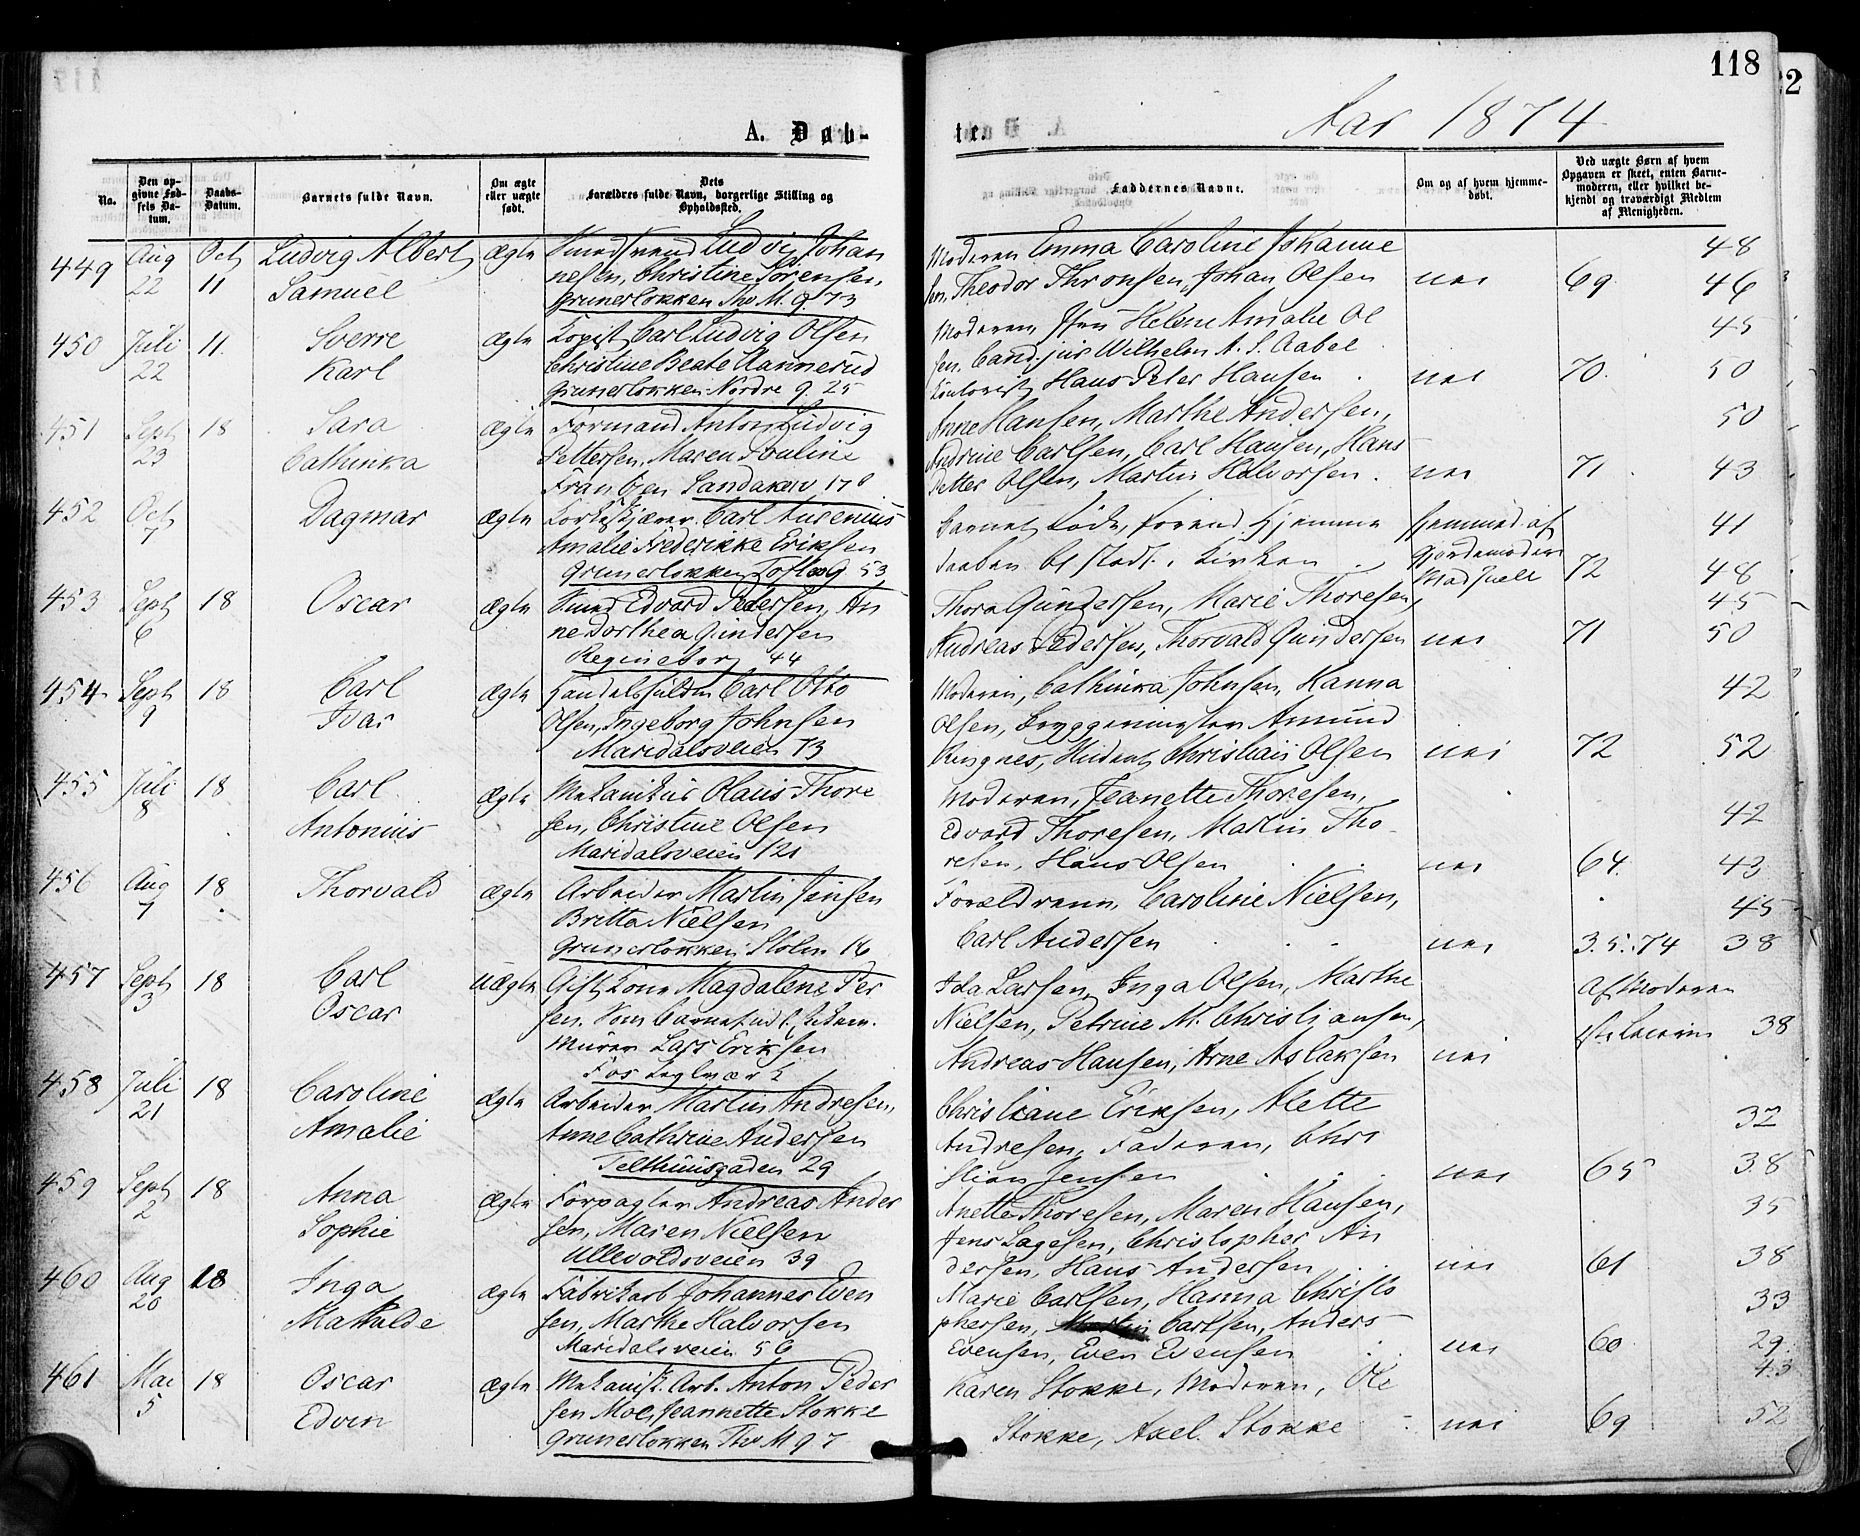 118
Aar 1874
A. Døb-
te.
No.
Den op-
givne Fød-
sels Da-
tum.
Daabs-
Datum.
Barnets fulde Navn.
Om ægte
eller uægte
født.
Dets
Forældres fulde Navn, borgerlige Stilling og
Opholdssted.
Faddernes Navne.
Om og af hvem hjemme-
døbt.
Ved uægte Børn af hvem
Opgaven er skeet, enten Barne-
moderen, eller hvilket be-
kjendt og troværdigt Medlem
af Menigheden.
449 Aug 22 Oct 11 Ludvig Albert Samuel ægte
Smedsvend Ludvig Johan
nesen, Christine Sørensen,
Grunerløkken Thv M. g. 73
Moderen Emma Caroline Johanne
sen, Theodor Thronsen, Johan Olsen nei 69 48
46
450 Juli 22 11. Sverre Karl ægte
Kopist Carl Ludvig Olsen
Christine Beate Hannerud
Grunerløkken Nordre g. 25
Moderen, Helene Amalie Ol
sen, Cand. jur Wilhelm A. S. Aabel
Kontorist Hans Peter Hansen nei 70. 45
50
451 Sept 23 18 Sara Cathinka ægte
Formand Anton Ludvig
Pettersen, Maren Pouline
Sandakerv 17
Anne Hansen, Marthe Andersen,
Andrine Carlsen, Carl Hansen, Hans
Petter Olsen, Martin Halvorsen. nei 71 50
43
452 Oct 7 Dagmar ægte
Carl Aurenius
Amalie Frederikke Eriksen
Grunerløkken Tofteg 53
Barnet døde, førend Hjemme
daaben bl. stadf. i Kirken
Hjemmed. af
Gjordemoder
72 41
48
453 Sept 6 18 Oscar ægte
Smed Edvard Pedersen, An
ne Dorthea Gundersen
Regineborg 44
Thora Gundersen, Marie Thoresen,
Andreas Pedersen, Thorvald Gundersen nei 71 45
50
454 Sept 9 18 Carl Ivar ægte
Carl Otto
Olsen, Ingeborg Johnsen
Maridalsveien 13
Moderen, Cathinka Johnsen, Hanna
Olsen, Bryggerimester Amund
Ringnes, Student Christian Olsen nei 72 42
52
455 Juli 8 18 Carl Antonius ægte
Mekanikus Olaus Thore
sen, Christine Olsen
Maridalsveien 121
Moderen, Jeanette Thoresen,
Edvard Thoresen, Martin Tho-
resen, Hans Olsen nei 64. 42
43
456 Aug 7 18 Thorvald ægte
Arbeider Martin Jensen
Britta Nielsen
Grunerløkken Stolm 16
Forældrene, Caroline Nielsen,
Carl Andersen nei 3.5.74 45
38
457 Sept 3 18 Carl Oscar uægte
Gift Kone Magdalene Per
sen.
Murer Lars Eriksen
Fos Teglværk
Ida Larsen, Inga Olsen, Marthe
Nielsen, Petrine M. Christiansen,
Andreas Hansen, Arne Aslaksen nei
Af Moderen
38
458 Juli 21 18 Caroline Amalie ægte
Arbeider Martin Andresen,
Anne Cathrine Andersen
Telthusgaden 29
Christiane Eriksen, Alette
Andresen, Faderen, Chri
stian Jensen nei 65 32
38
459 Sept 2 18 Anna Sophie ægte
Forpagter Andreas Ander
sen, Maren Nielsen
Ullevoldsveien 39
Anette Thoresen, Maren Hansen,
Jens Lagesen, Christopher An
dersen, Hans Andersen nei 61 35
38
460 Aug 20 18 Inga Mathilde ægte
Fabrikarb Johannes Even
sen, Marthe Halvorsen
Maridalsveien 56
Marie Carlsen, Hanna Christo
phersen, Carlsen, Anders
Evensen, Even Evensen nei 60 33
29
461 Mai 5 18 Oscar Edvin ægte
Mekanisk. Arb. Anton Peder
sen Moe, Jeannette Stokke
Grunerløkken Thv M g 7
Karen Stokke, Moderen, Ole
Stokke, Axel Stokke nei 69 43
52